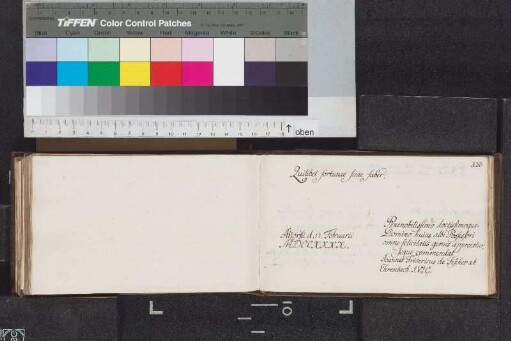 TIFFEN Color Control Patches
Blue Cyan Green Yellow Red Magenta White 3/Color Black
oben
320
Quilibet fortunae suae faber.
Altorfii d. 17. Februarii
MDCCXXXX.
Praenobilissimo doctissimoque
Domino huius albi Possessori
omne felicitatis genus apprecatur,
seque commendat
Joannes Fridericus de
Ehrenbach